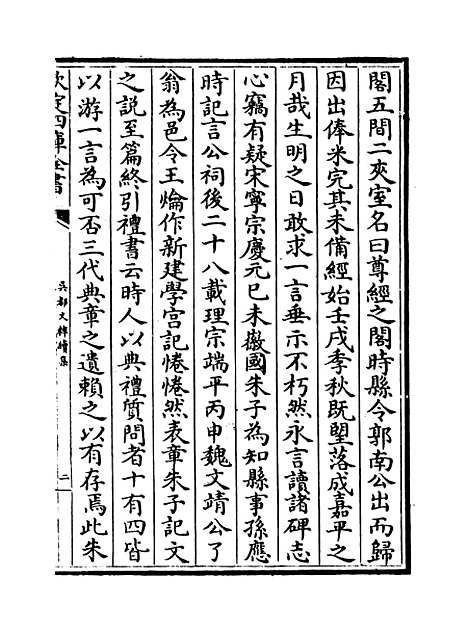 閣五間二夾室名曰尊經之閣時縣令郭南公出而歸
因出俸米完其未備經始壬戌季秋既塈落成嘉平之
月哉生明之日敢求一言垂示不朽然永言讀諸碑志
心竊有疑宋寧宗慶元已未徽國朱子為知縣事孫應
時記言公祠後二十八載理宗端平丙申魏文靖公了
翁為邑令王爚作新建學宫記惓惓然表章朱子記文
之説至篇終引禮書云時人以典禮質問者十有四皆
以游一言為可否三代典章之遺頼之以有存焉此朱
欽定四庫全書
吳都文粹續集
二